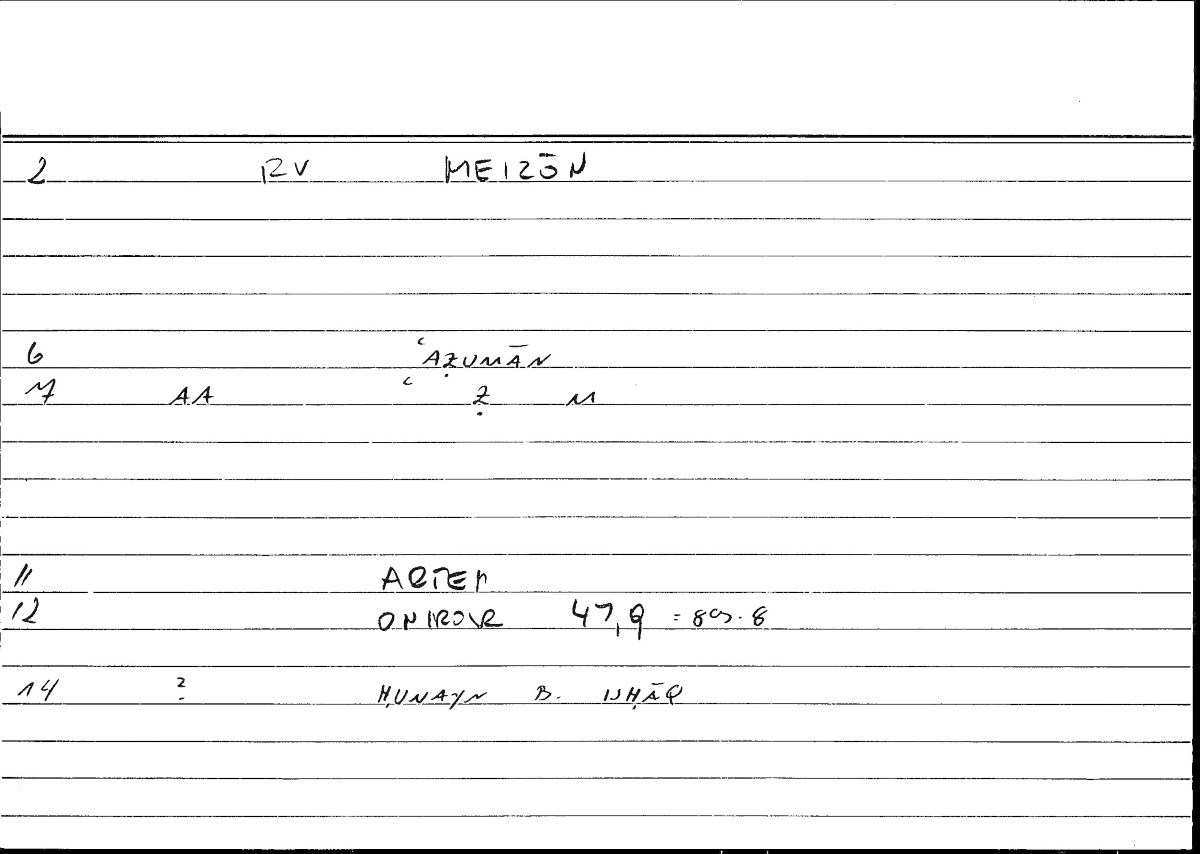 2 RV MEIZŌN
6 ʿAẒUMĀN
7 AA ʿ Ẓ M
11 ARTEM
12 ONIROCR 47,9 = 89.8
14 ? ḤUNAYN B. ISḤĀQ